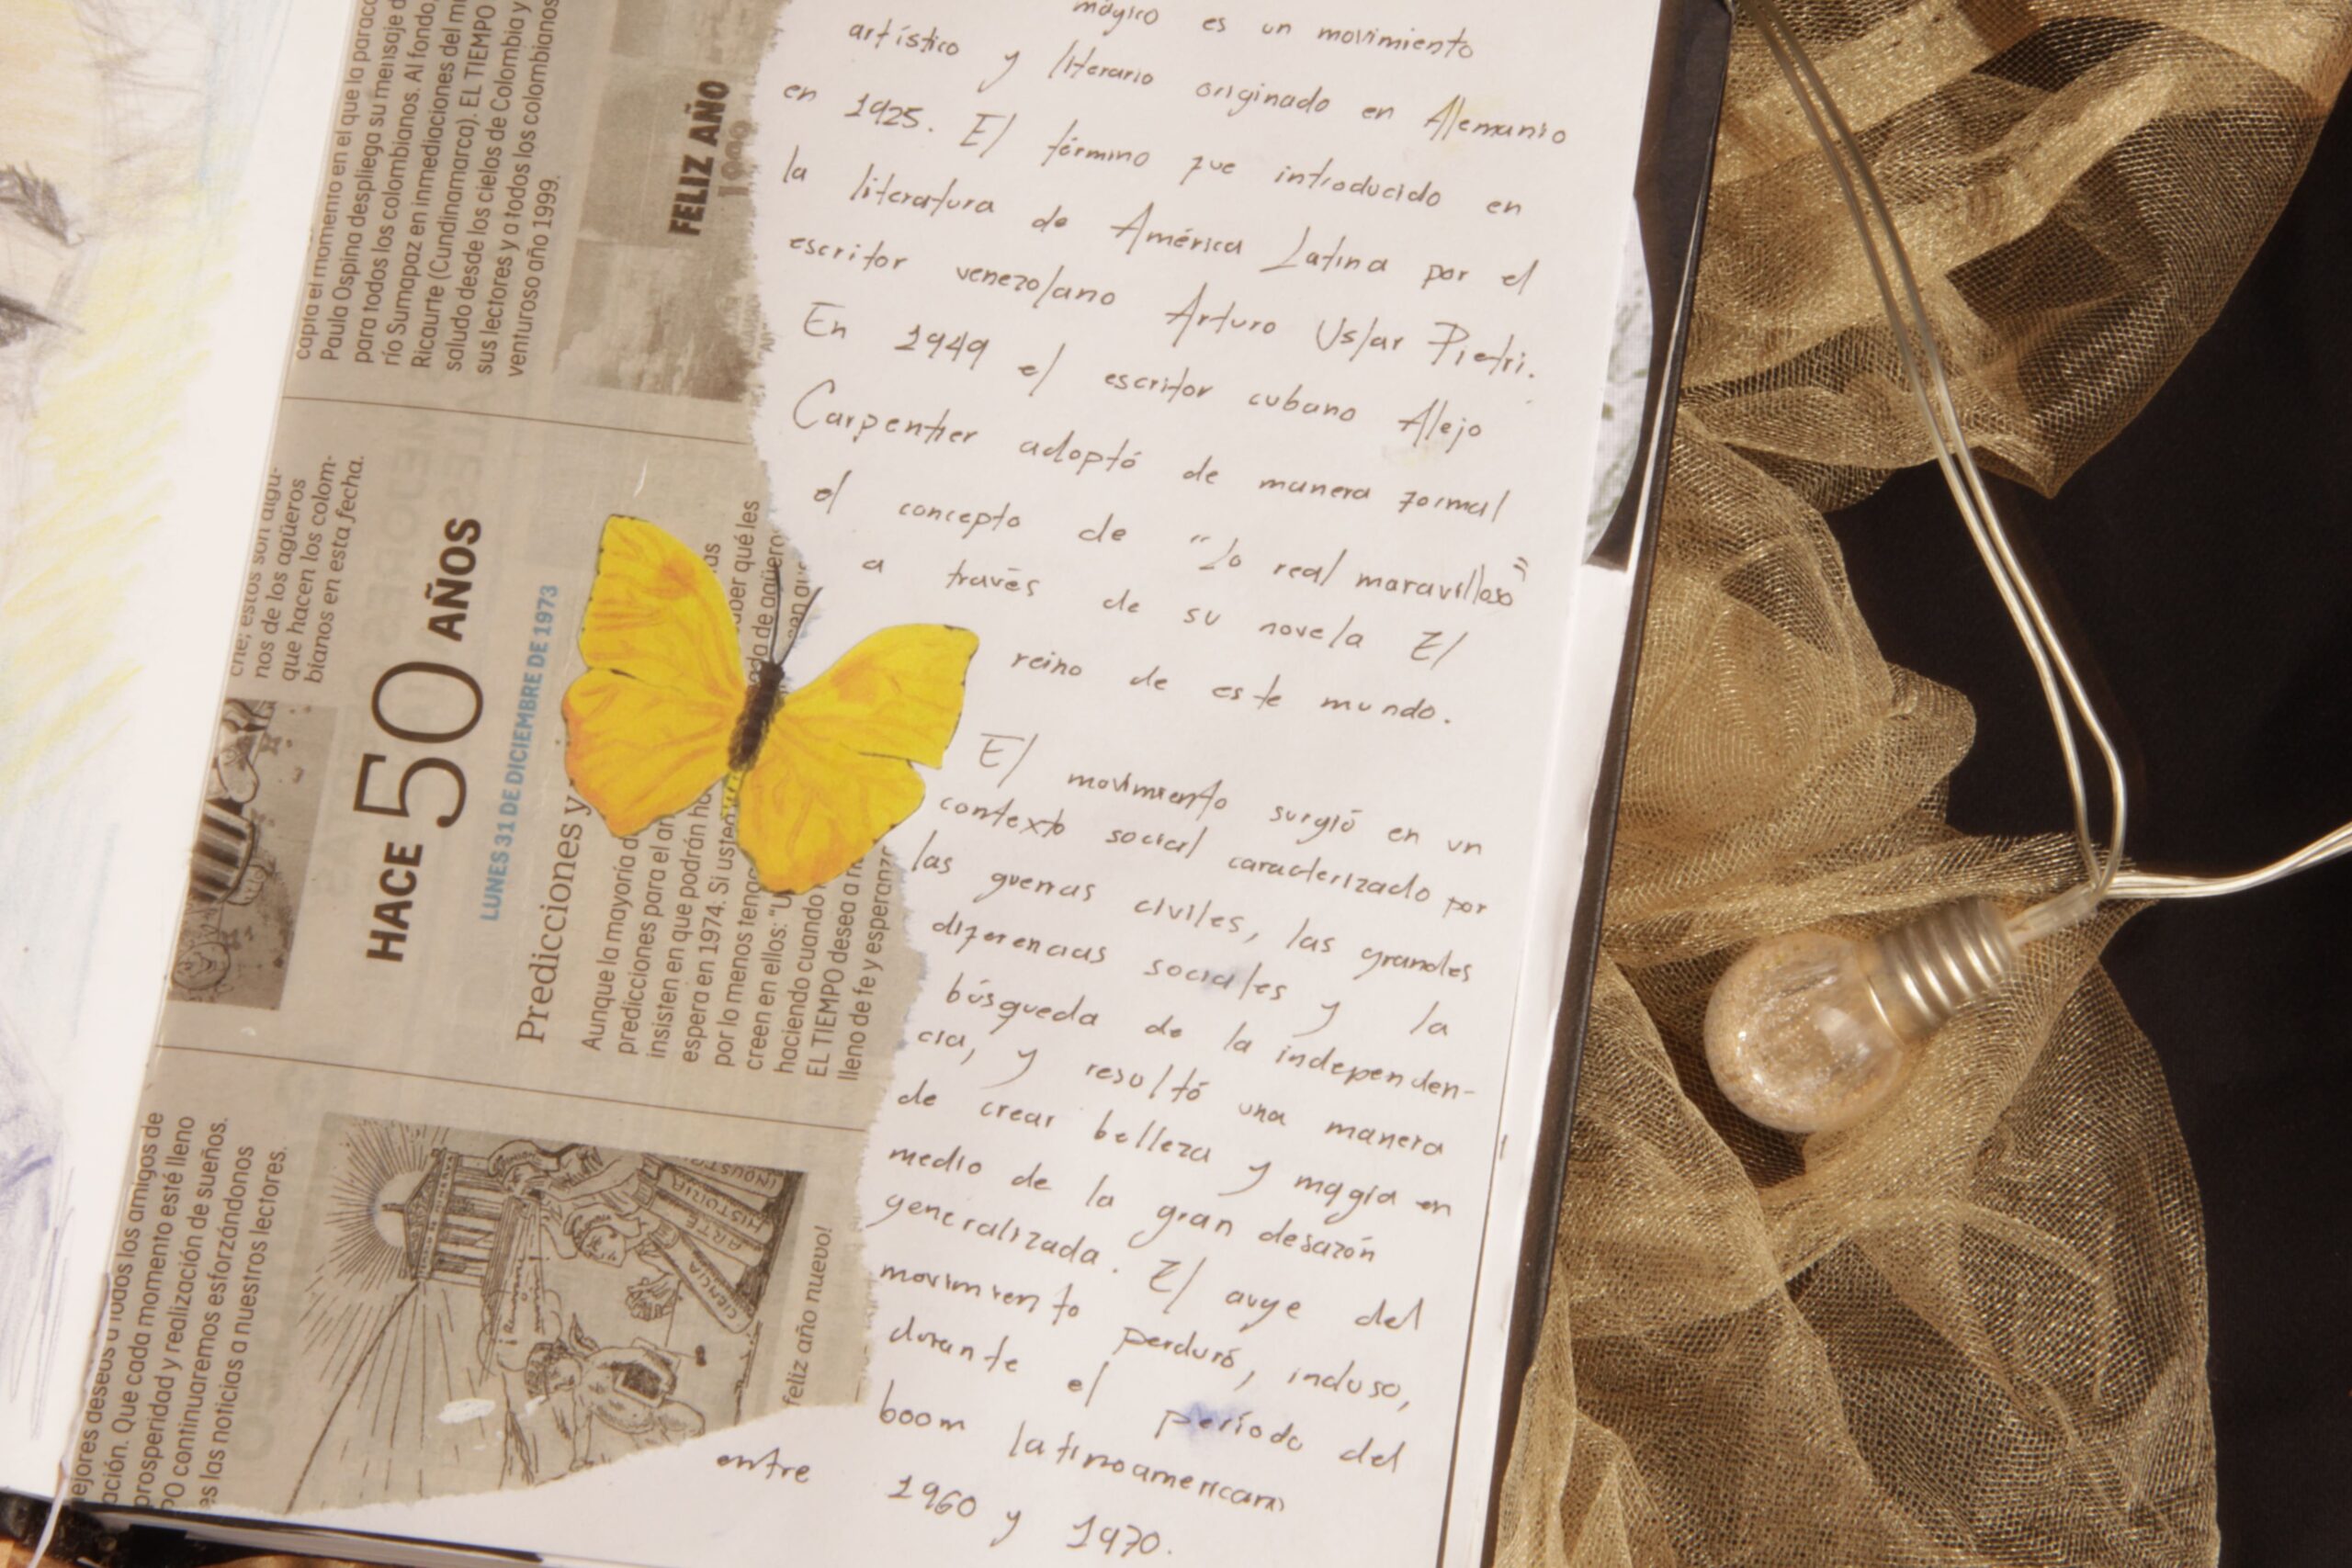 mágico es un movimiento
artístico y literario originado en Alemania
en 1925. El término fue introducido en
la literatura de América Latina por el
escritor venezolano Arturo Uslar Pietri.
En 1949 el escritor cubano Alejo
Carpentier adoptó de manera formal
el concepto de "lo real maravilloso"
a través de su novela El
reino de este mundo.
El movimiento surgió en un
contexto social caracterizado por
las guerras civiles, las grandes
diferencias sociales y la
búsqueda de la independen-
cia, y resultó una manera
de crear belleza y magia en
medio de la gran desazón
generalizada. El auge del
movimiento perduró, incluso,
durante el período del
boom latinoamericano
entre 1960 y 1970.
capta el momento en el que la parac
Paula Ospina despliega su mensaje d
para todos los colombianos. Al fondo,
río Sumapaz en inmediaciones del m
Ricaurte (Cundinamarca). EL TIEMPO
saludo desde los cielos de Colombia y
sus lectores y a todos los colombianos
venturoso año 1999.
FELIZ AÑO
1999
che; estos son algu-
nos de los agüeros
que hacen los colom-
bianos en esta fecha.
HACE 50 AÑOS
LUNES 31 DE DICIEMBRE DE 1973
Predicciones y
Aunque la mayoría d
predicciones para el
insisten en que podrán
espera en 1974. Si usted
por lo menos tenga
creen en ellos: "U
haciendo cuando
EL TIEMPO desea a
lleno de fe y esperanz
saber qué les
de agüero
ejores deseos a todos los amigos de
ación. Que cada momento esté lleno
prosperidad y realización de sueños.
PO continuaremos esforzándonos
es las noticias a nuestros lectores.
CIENCIA
ARTE
HISTORIA
INDUSTR
feliz año nuevo!